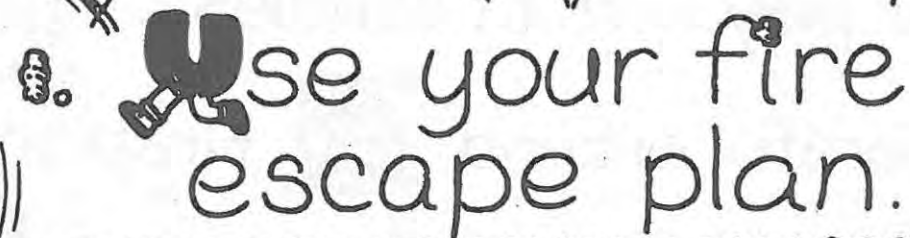 Use your fire
escape plan.